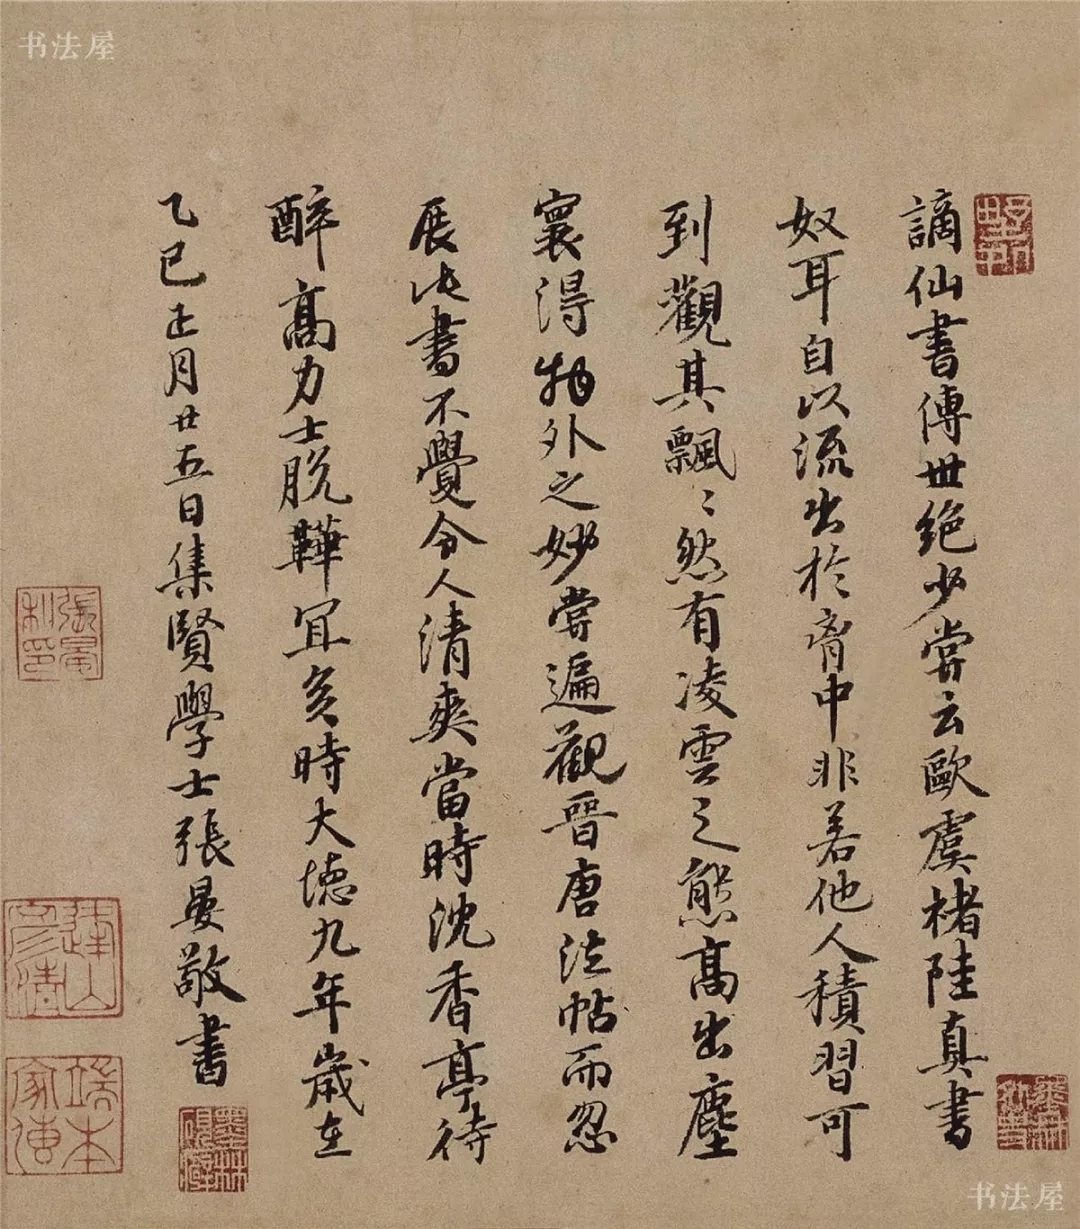 书法屋
謫仙書傳世絕少嘗云歐虞褚陸真書
奴耳自以流出於胷中非若他人積習可
到觀其飄〻然有凌雲之態高出塵
寰得物外之妙嘗遍觀晉唐法帖而忽
展此書不覺令人清爽當時沈香亭待
醉高力士脫鞾冝矣時大德九年歲在
乙巳正月廿五日集賢學士張晏敬書
張晏
私印
端本
家傳
书法屋